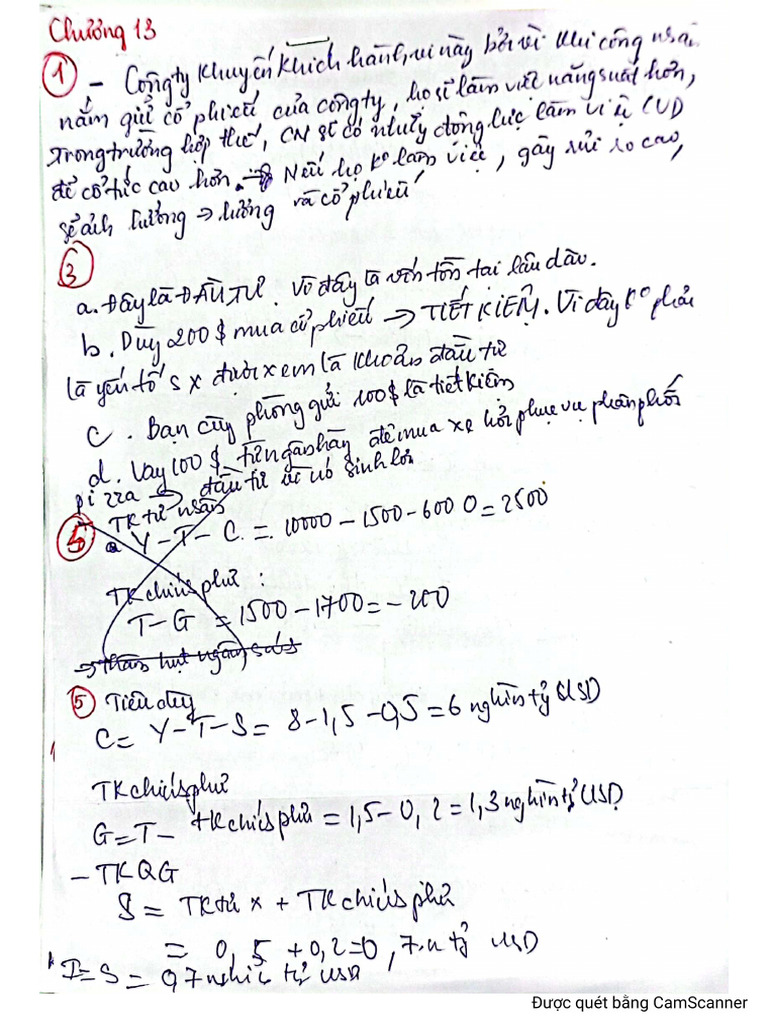 Chương 13
① - Công ty khuyến khích hành vi này bởi vì khi công nhân
nắm giữ cổ phiếu của công ty, họ sẽ làm việc năng suất hơn,
trong trường hợp thế, CN sẽ có nhiều động lực làm việc (VD
để cổ tức cao hơn. → Nếu họ ko làm việc, gây rủi ro cao,
sẽ ảnh hưởng → lương và cổ phiếu
③
a. Đây là ĐẦU TƯ. Vì đây là vốn tồn tại lâu dài.
b. Dùng 200$ mua cổ phiếu → TIẾT KIỆM. Vì đây ko phải
là yếu tố sx được xem là khoản đầu tư
c. Bạn cùng phòng gửi 100$ là tiết kiệm
d. Vay 100$ từ ngân hàng để mua xe hơi phục vụ phân phối
pizza → đầu tư vì nó sinh lời
⑤ TK tư nhân
a Y-T-C = 10000-1500-6000 = 2500
TK chính phủ:
T-G = 1500-1700 = -200
→ thâm hụt ngân sách
⑤ Tiêu dùng
C = Y-T-S = 8-1,5-0,5 = 6 nghìn tỷ USD
TK chính phủ
G = T - TK chính phủ = 1,5-0,2 = 1,3 nghìn tỷ USD
- TKQG
S = TK tư + TK chính phủ
= 0,5 + 0,2 = 0,7 n tỷ USD
I = S = 0,7 nghìn tỷ USD
Được quét bằng CamScanner